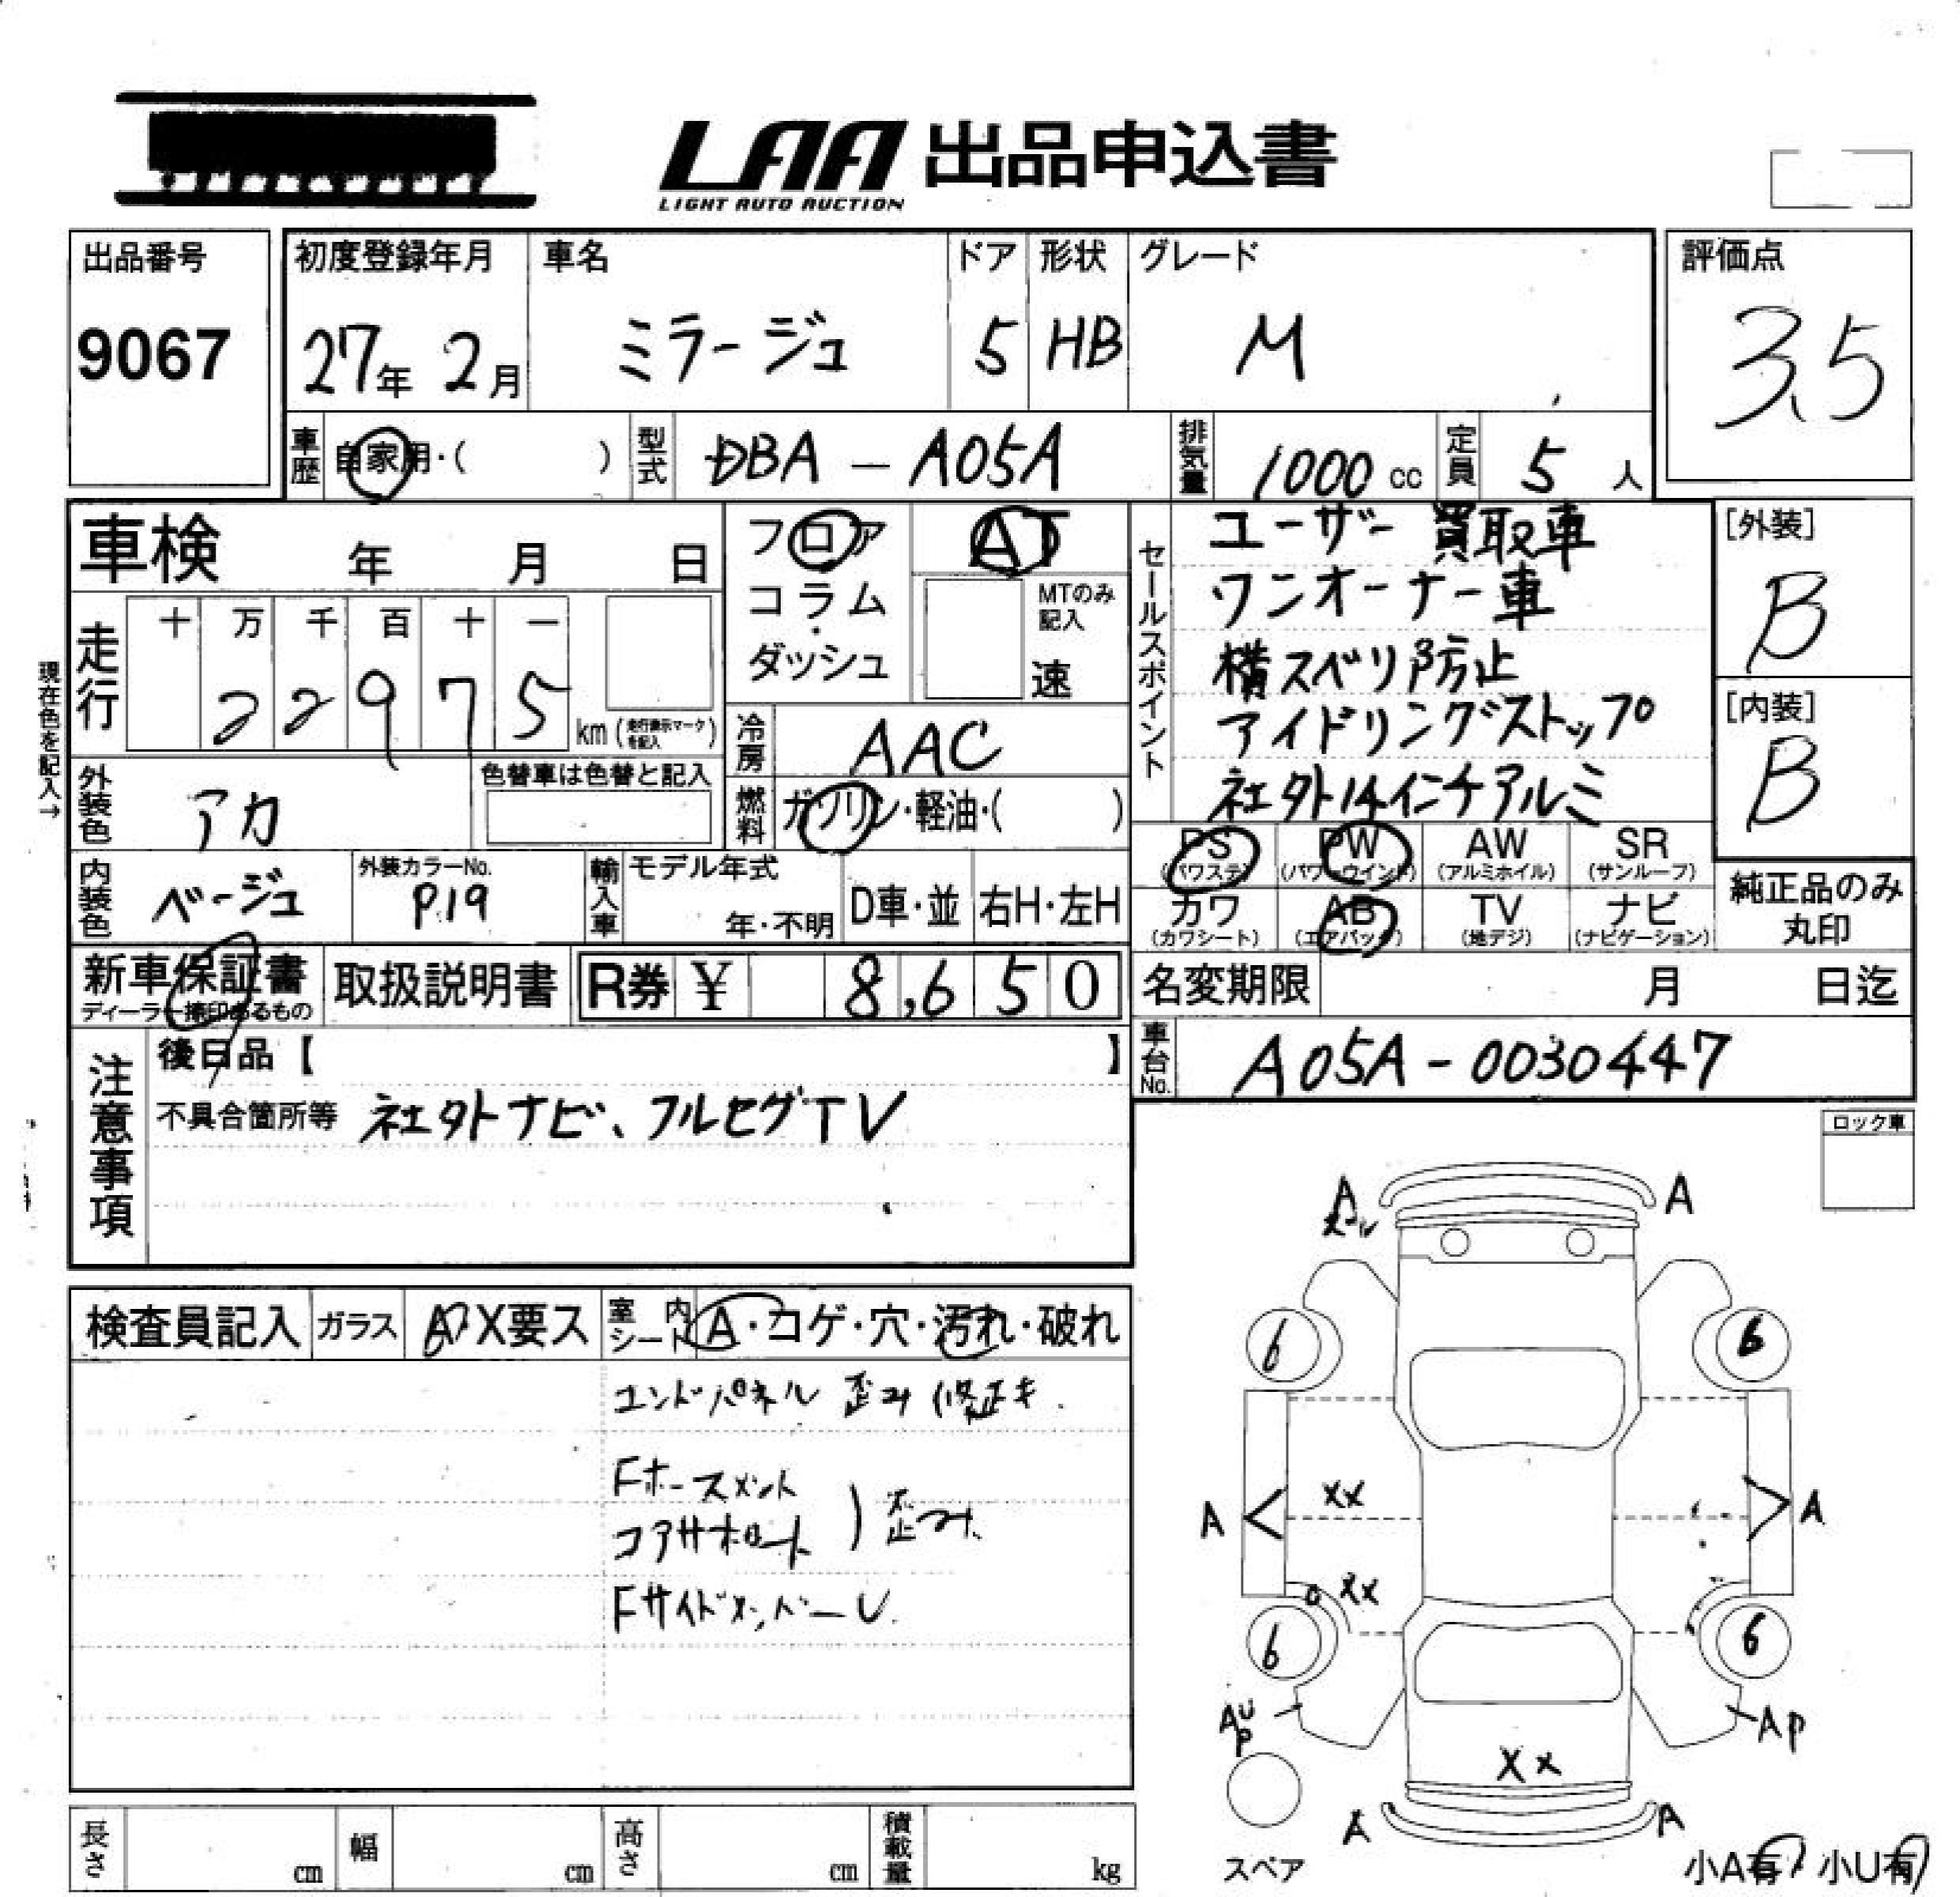 LAA 出品申込書
LIGHT AUTO AUCTION
出品番号
9067
初度登録年月
27年 2月
車名
ミラージュ
ドア
5
形状
HB
グレード
M
評価点
3.5
車歴
自家用・( )
型式
DBA - A05A
排気量
1000 cc
定員
5 人
車検 年 月 日
フロア
コラム
・
ダッシュ
AT
MTのみ
記入
速
セールスポイント
ユーザー買取車
ワンオーナー車
横スベリ防止
アイドリングストップ
社外14インチアルミ
[外装]
B
[内装]
B
現在色を記入→
走行
十 万 千 百 十 一
2 2 9 7 5
km (走行表示マークを記入)
冷房
AAC
外装色
アカ
色替車は色替と記入
燃料
ガソリン・軽油・( )
PS
(パワステ)
PW
(パワーウインド)
AW
(アルミホイル)
SR
(サンルーフ)
カワ
(カワシート)
AB
(エアバック)
TV
(地デジ)
ナビ
(ナビゲーション)
純正品のみ
丸印
内装色
ベージュ
外装カラーNo.
P19
輸入車
モデル年式
年・不明
D車・並
右H・左H
新車保証書
ディーラー捺印あるもの
取扱説明書
R券 ¥ 8,650
名変期限 月 日迄
車台No.
A05A-0030447
注意事項
後日品【 】
不具合箇所等 社外ナビ、フルセグTV
ロック車
検査員記入
ガラス
A・X要ス
室内シート
A・コゲ・穴・汚れ・破れ
エンドパネル 歪み修正キ.
Fホースメント
コアサポート ) 歪み.
FサイドメンバーU.
A A
6 6
A XX A
XX
6 6
AUP AP
XX
A A
スペア
小A有・小U有
長さ cm
幅 cm
高さ cm
積載量 kg